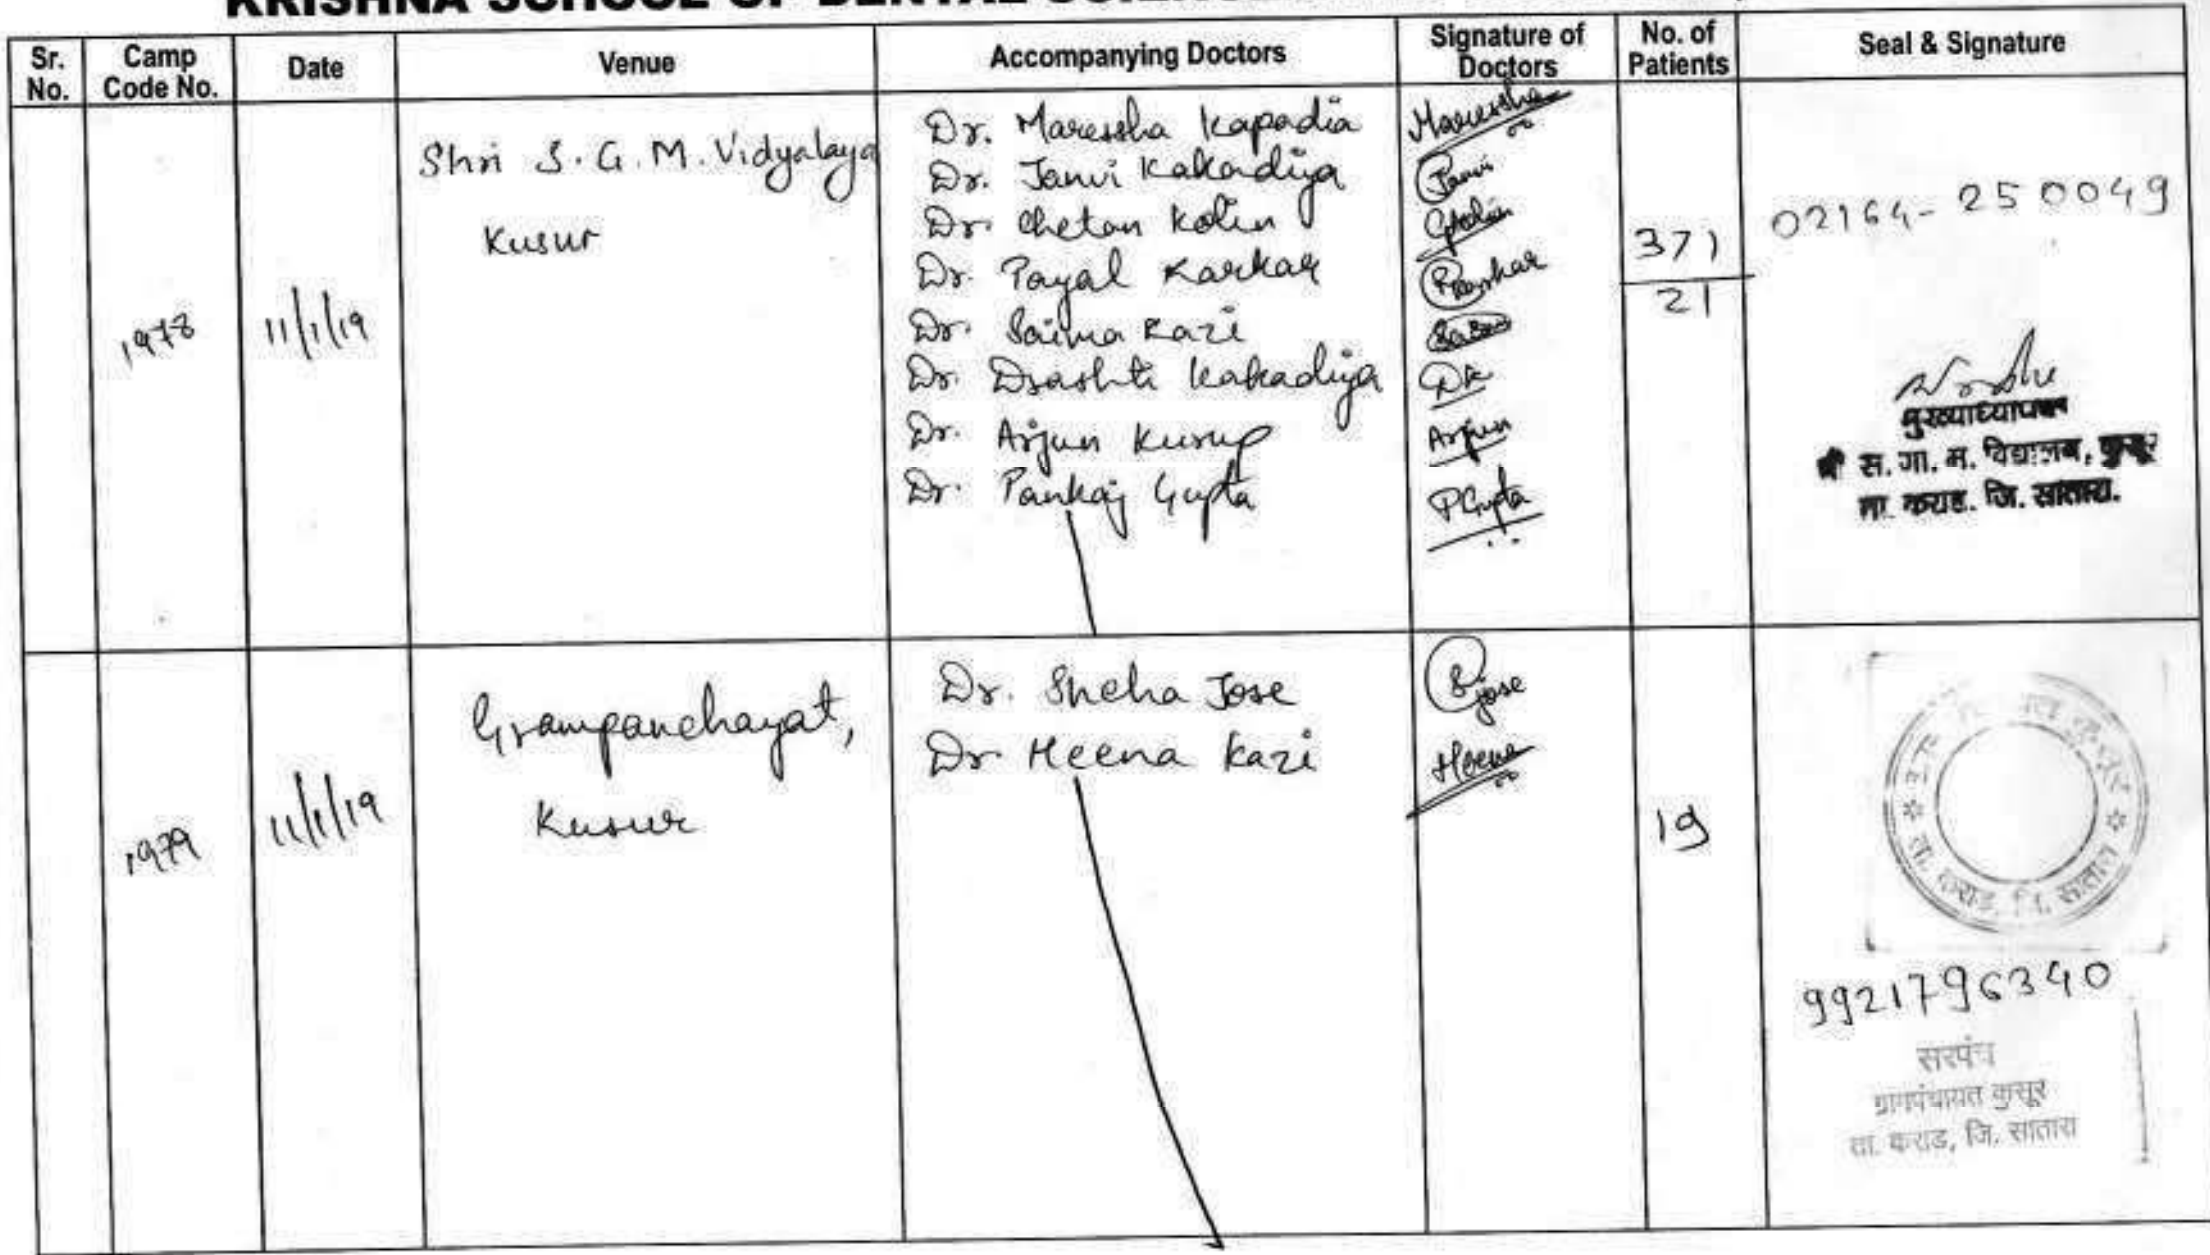 KRISHNA SCHOOL OF DENTAL
Sr. No.
Camp Code No.
Date
Venue
Accompanying Doctors
Signature of Doctors
No. of Patients
Seal & Signature
1978
11/1/19
Shri S. G. M. Vidyalaya
Kusur
Dr. Maressha Kapadia
Dr. Janvi Kakadiya
Dr. Chetan
Dr. Payal Karkar
Dr. Saima Kazi
Dr. Drashti Kakadiya
Dr. Arjun Kurup
Dr. Pankaj Gupta
Maressha
Janvi
DK
Arjun
PGupta
371
21
02164-250049
मुख्याध्यापक
श्री स. गा. म. विद्यालय, कुसूर
ता. कराड. जि. सातारा.
1979
11/1/19
Grampanchayat,
Kusur
Dr. Sneha Jose
Dr Heena Kazi
S. Jose
Heena
19
ता. कराड, जि. सातारा
9921796340
सरपंच
ग्रामपंचायत कुसूर
ता. कराड, जि. सातारा